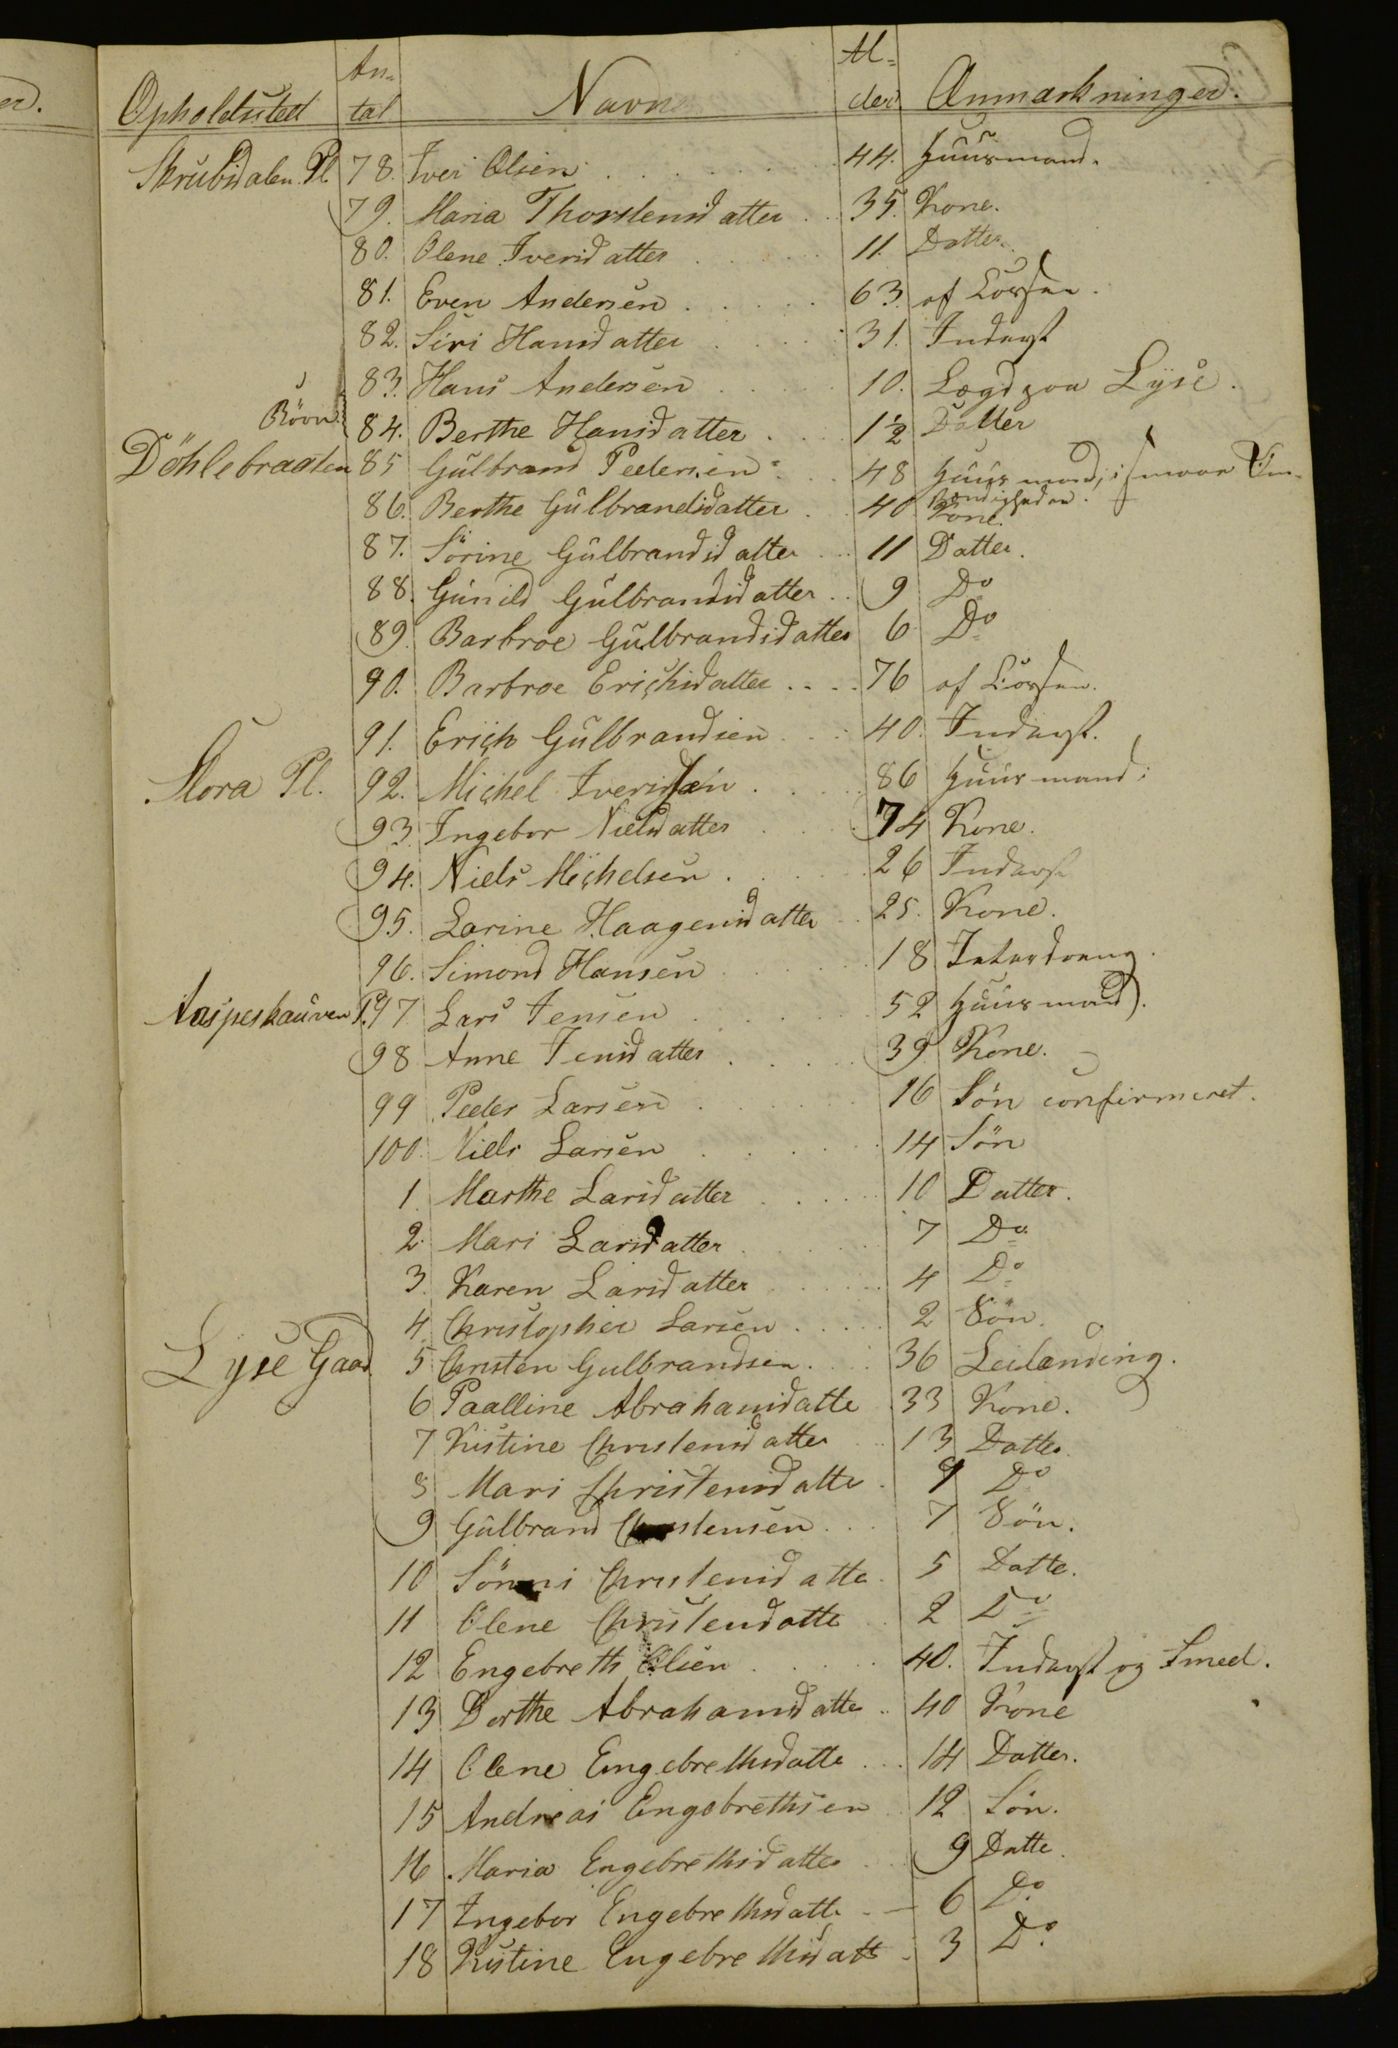 Opholdssted An-tal Navne Al-der Anmærkninger.
Skrubsdalen Pl. 78. Iver Olsen 44. Huusmand.
79. Maria Thorstensdatter 35. Kone.
80. Olene Iversdatter 11. Datter
81. Even Andersen 63. af
82. Siri Hansdatter 31. Inderst
83. Hans Andersen 10. Lægd paa Lyse.
Börn 84. Berthe Hansdatter 1½ Datter
Döhlebraaten 85 Gulbrand Pedersen 48 Huusmand, i smaae Om-
stændigheder.
86. Berthe Gulbrandsdatter 40 Kone.
87. Sörine Gulbrandsdatter 11 Datter.
88. Gunild Gulbrandsdatter 9 Do
89. Barbroe Gulbrandsdatter 6 Do
90. Barbroe Erichsdatter 76 af
91. Erich Gulbrandsen 40. Inderst.
Mora Pl. 92. Michel Iversen 86 Huusmand
93. Ingebor Nielsdatter 74 Kone.
94. Niels Michelsen 26 Inderst
95. Larine Haagensdatter 25. Kone.
96. Simond Hansen 18
Aaspeshauven P. 97 Lars Jensen 52 Huusmand.
98 Anne Jensdatter 39 Kone.
99 Peder Larsen 16 Sön confirmeret.
100. Niels Larsen 14 Sön
1. Marthe Larsdatter 10 Datter.
2. Mari Larsdatter 7 Do
3. Karen Larsdatter 4 Do
4. Christopher Larsen 2 Sön.
Lyse Gaard 5 Christen Gulbrandsen 36 Leilænding.
6 Paalline Abrahamsdatte 33 Kone.
7 Kistine Christensdatter 13 Datter
8 Mari Christensdatte 9 Do
9 Gulbrand Christensen 7 Sön.
10 Sönni Christensdatte 5 Datte.
11 Olene Christensdatte 2 Do
12 Engebreth Olsen 40. Inderst og Smed.
13 Dorthe Abrahamsdatte 40 Kone
14 Olene Engebrethsdatte 14 Datter.
15 Andreas Engebrethsen 12 Sön.
16 Maria Engebrethsdatter 9 Datte.
17 Ingebor Engebrethsdatte 6 Do
18 Kistine Engebrethsdatt 3 Do